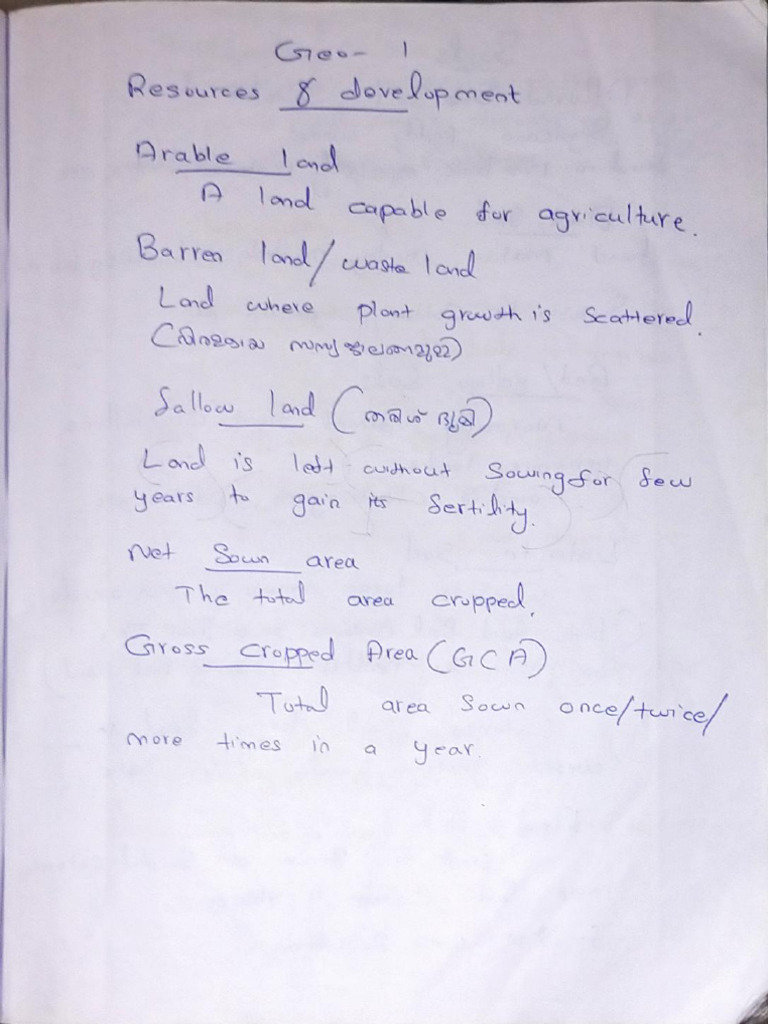 Geo- 1
Resources & development
Arable land
A land capable for agriculture.
Barren land/ waste land
Land where plant growth is scattered.
(വിരളമായ സസ്യജാലങ്ങളുള്ള)
Fallow land (തരിശ് ഭൂമി)
Land is left without Sowing for few
years to gain its fertility.
Net Sown area
The total area cropped.
Gross cropped Area (GCA)
Total area Sown once/twice/
more times in a year.